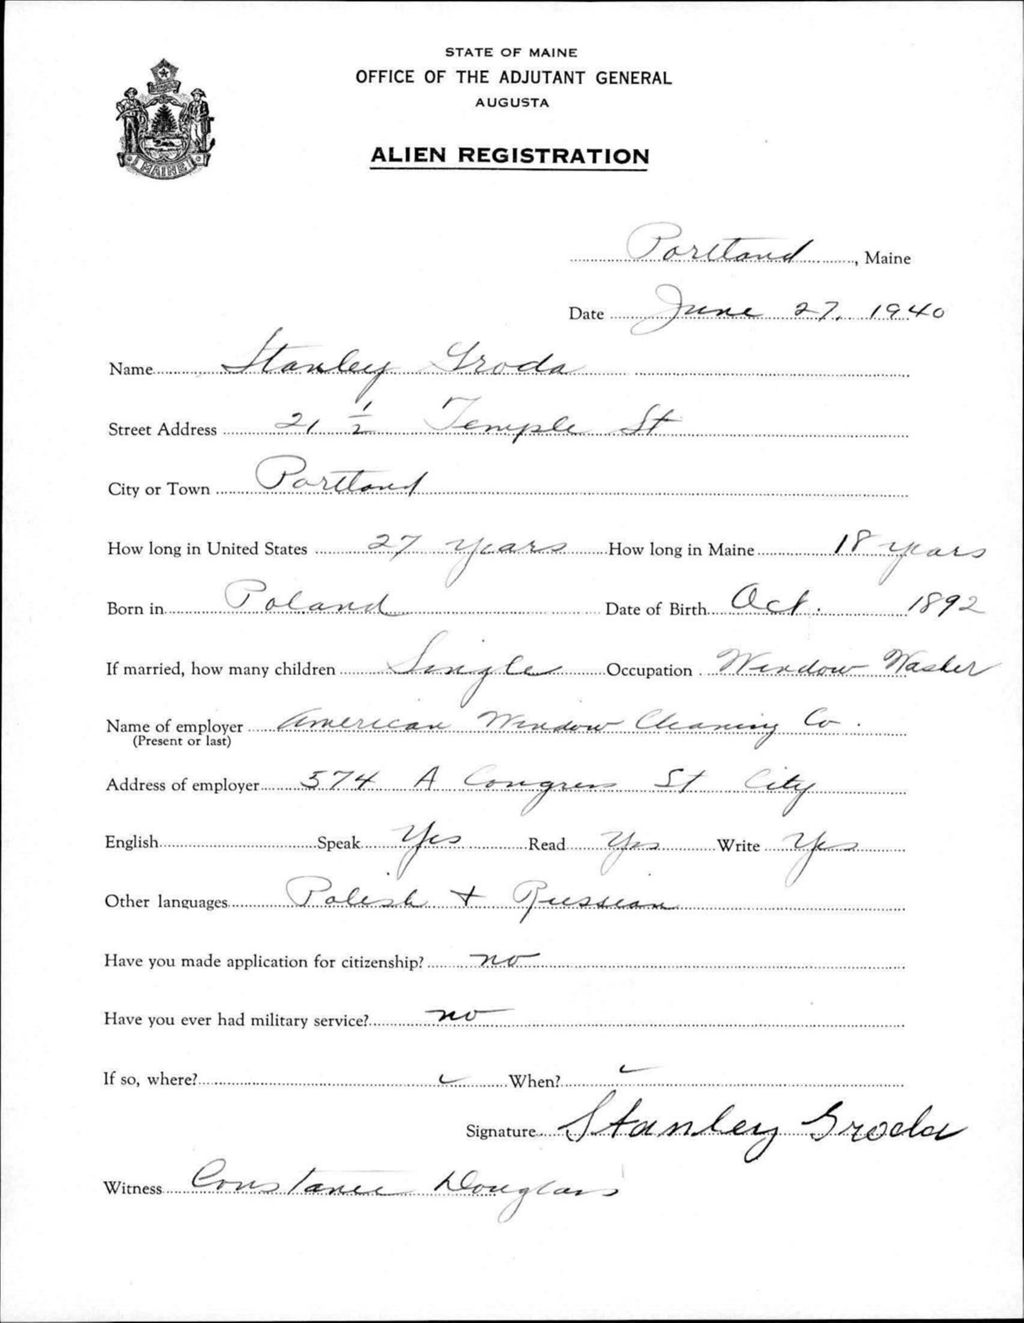 STATE OF MAINE
OFFICE OF THE ADJUTANT GENERAL
AUGUSTA
ALIEN REGISTRATION
MAINE
Portland, Maine
Date June 27, 1940
Name Stanley Groda
Street Address 21 1/2 Temple St
City or Town Portland
How long in United States 27 years How long in Maine 18 years
Born in Poland Date of Birth Oct. 1892
If married, how many children Single Occupation Window Washer
Name of employer American Window Cleaning Co.
(Present or last)
Address of employer 574 A Congress St City
English Speak Yes Read Yes Write Yes
Other languages Polish + Russian
Have you made application for citizenship? no
Have you ever had military service? no
If so, where? When?
Signature Stanley Groda
Witness Constance Douglass